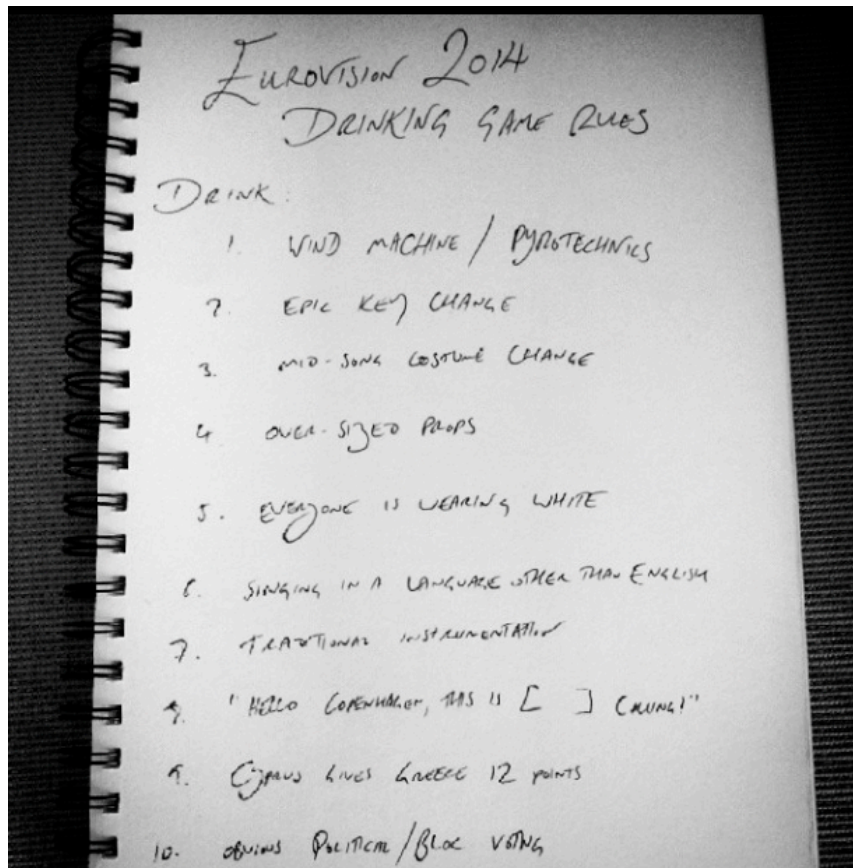 EUROVISION 2014
DRINKING GAME RULES
DRINK:
1. WIND MACHINE / PYROTECHNICS
2. EPIC KEY CHANGE
3. MID-SONG COSTUME CHANGE
4 OVER-SIZED PROPS
5. EVERYONE IS WEARING WHITE
6. SINGING IN A LANGUAGE OTHER THAN ENGLISH
7. TRADITIONAL INSTRUMENTATION
8. "HELLO COPENHAGEN, THIS IS [ ] CALLING!"
9. CYPRUS GIVES GREECE 12 POINTS
10. OBVIOUS POLITICAL / BLOC VOTING